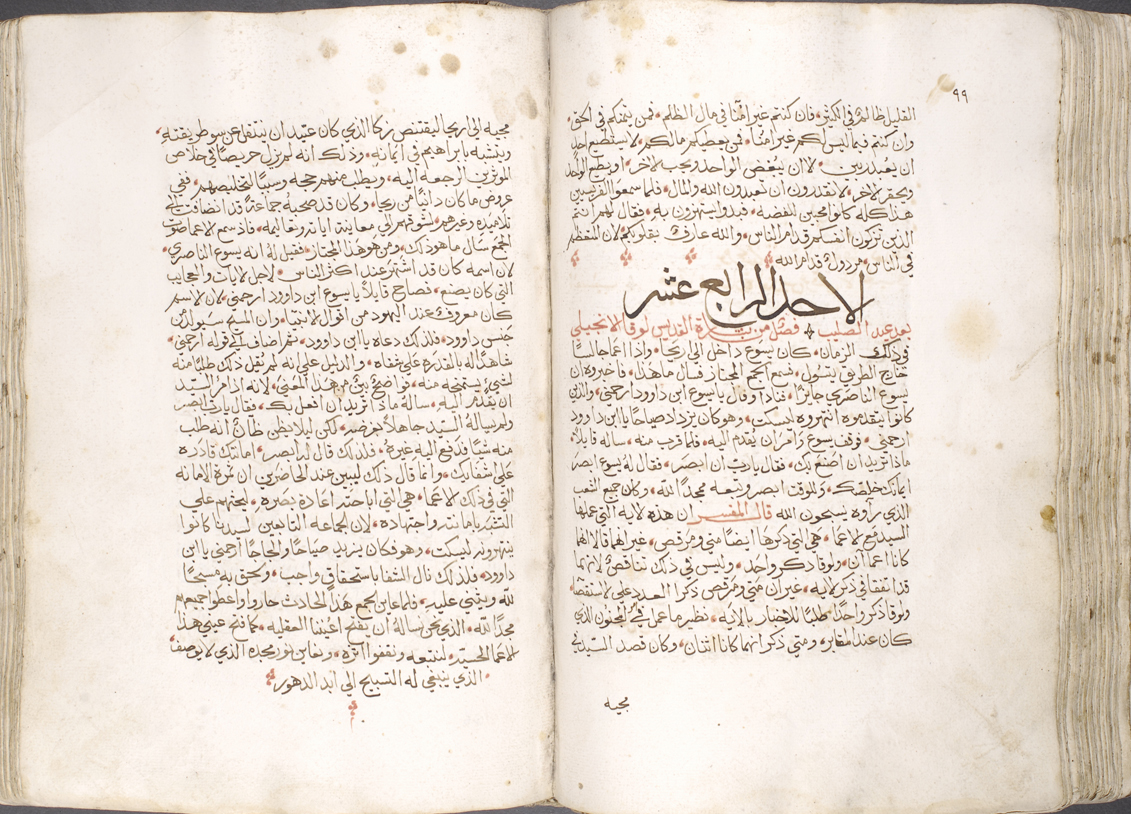 ٩٩
القليل ظالم وفي الكثير، فان كنتم غير امنا في مال الظلم، فمن يتمنكم في الحق،
وان كنتم فيما ليس لكم غير امنا، فمن يعطيكم مالكم، لا يستطيع احد
ان يعبد ربين، لان ان يبغض الواحد ويحب الاخر، او يطيع الواحد
ويحقر الاخر، لا تقدرون ان تعبدون الله والمال، فلما سمعوا الفريسيين
هذا كله كانوا محبين للفضه، فبدوا يستهزون به، فقال لهم انتم
الذين تزكون انفسكم قدام الناس، والله عارف بقلوبكم، لان المتعظم
في الناس، مردول قدام الله
الاحد الرابع عشر
بعد عيد الصليب، فصل من بشارة القديس لوقا الانجيلي
في ذلك الزمان، كان يسوع داخل الي اريحا، واذا اعما جالسا
خارج الطريق يتسول، فسمع الجمع المجتاز فسال ما هذا، فاخبروه ان
يسوع الناصري جائزا، فنادا وقال يا يسوع ابن داوود ارحمني، والذين
كانوا يتقدموه انتهروه ليسكت، وهو كان يزداد صياحا يا ابن داوود
ارحمني، فوقف يسوع وامر ان يقدم اليه، فلما قرب منه، ساله قايلا،
ماذا تريد ان اصنع بك، فقال يا رب ان ابصر، فقال له يسوع ابصر
ايمانك خلصك، وللوقت ابصر وتبعه ممجدا الله، وكان جميع الشعب
الذي راوه يسبحون الله قال المفسر ان هذه الايه التي عملها
السيد مع الاعما، هي التي ذكرها ايضا متي ومرقص، غير انهما قالا انهما
كانا اعما آن، ولوقا ذكر واحد، وليس في ذلك تناقض، لانهما
قد اتفقا في ذكر الايه، غير ان متي ومرقص ذكرا العدد علي الاستقصا
ولوقا ذكر واحدا طلبا للاخبار بالايه، نظير ما عمل في المجنون الذي
كان عند المقابر، ومتي ذكر انهما كانا اثنان، وكان قصد السيد في
مجيه
مجيه الي اريحا ليقتنص زكا الذي كان عتيد ان ينتقل عن سو طريقته،
ويتشبه بابراهيم في ايمانه، وذلك انه لم يزل حريصا في خلاص
الموثرين الرجعه اليه، ويطلب منهم حجه وسببا لتخليصهم، ففي
عروض ما كان دانيا من ريحا، وكان قد صحبه جماعة قد انضافت الي
تلاميذه وغيرهم، لشوقهم الي معاينة اياته وتعاليمه، فاذ سمع الاعما صوت
الجمع سال ما هو ذلك، ومن هو هذا المجتاز، فقيل له انه يسوع الناصري،
لان اسمه كان قد اشتهر عند اكثر الناس، لاجل الايات والعجايب
التي كان يصنع، فصاح قايلا يا يسوع ابن داوود ارحمني، لان الاسم
كان معروف عند اليهود من اقوال الانبيا، وان المسيح سيولد من
جنس داوود، فلذلك دعاه يا ابن داوود، ثم اضاف الي قوله ارحمني،
شاهدا له بالقدرة علي شفاه، والدليل علي انه لم يقل ذلك طلبا منه
لشي يستمنحه منه، فواضح بين من هذا المعني، لانه اذ امر السيد
ان يقدم اليه، ساله ماذا تريد ان افعل بك، فقال يا رب ابصر
ولم يساله السيد جاهلا بغرضه، لكن ليلا يظن ظان انه طلب
منه شيا فدفع اليه غيره، فلذلك قال له ابصر، امانتك قادره
علي شفايك، وانما قال ذلك ليبين عند الحاضرين ان ثمرة الامانه
التي في ذلك الاعما، هي التي اباحته اعادة بصره، ليحثهم علي
التشبه بامانته واجتهاده، لان الجماعه التابعين لسيدنا كانوا
ينتهرونه ليسكت، وهو فكان يزيد صياحا والحاحا ارحمني يا ابن
داوود، فلذلك نال الشفا باستحقاق واجب، ولحق به مسبحا
لله ويثني عليه، فلما عاين الجمع هذا الحادث حاروا واعطوا جميعهم
مجدا لله، الذي نحن نساله ان يفتح اعيننا العقليه، كما فتح عيني هذا
الاعما الحسيه، لنتبعه ونقفوا اثره، ونعاين نور مجده الذي لا يوصف،
الذي ينبغي له التسبيح الي ابد الدهور